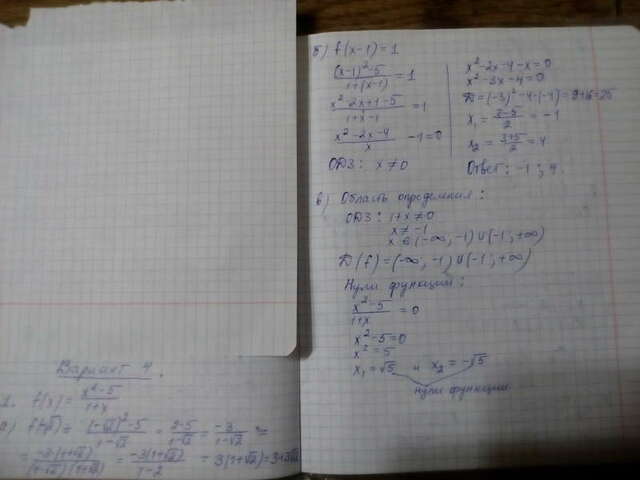 Вариант 4.
1. f(x) = (x²-5)/(1+x)
а) f(-√2) = ((-√2)²-5)/(1-√2) = (2-5)/(1-√2) = -3/(1-√2) =
= -3·(1+√2)/((1-√2)(1+√2)) = -3(1+√2)/(1-2) = 3(1+√2) = 3+3√2
б) f(x-1) = 1
((x-1)²-5)/(1+(x-1)) = 1
(x²-2x+1-5)/(1+x-1) = 1
(x²-2x-4)/x -1=0
ОДЗ: x ≠ 0
x²-2x-4-x=0
x²-3x-4=0
D=(-3)²-4·(-4)=9+16=25
x₁ = (3-5)/2 = -1
x₂ = (3+5)/2 = 4
Ответ: -1; 4.
в) Область определения:
ОДЗ: 1+x ≠ 0
x ≠ -1
x ∈ (-∞; -1) ∪ (-1; +∞)
D(f) = (-∞; -1) ∪ (-1; +∞)
Нули функции:
(x²-5)/(1+x) = 0
x²-5=0
x²=5
x₁ = √5 и x₂ = -√5
нули функции